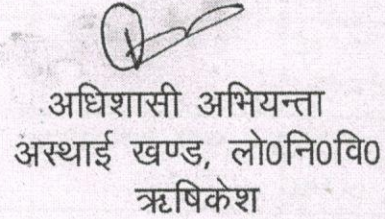 अधिशासी अभियन्ता
अस्थाई खण्ड, लो0नि0वि0
ऋषिकेश